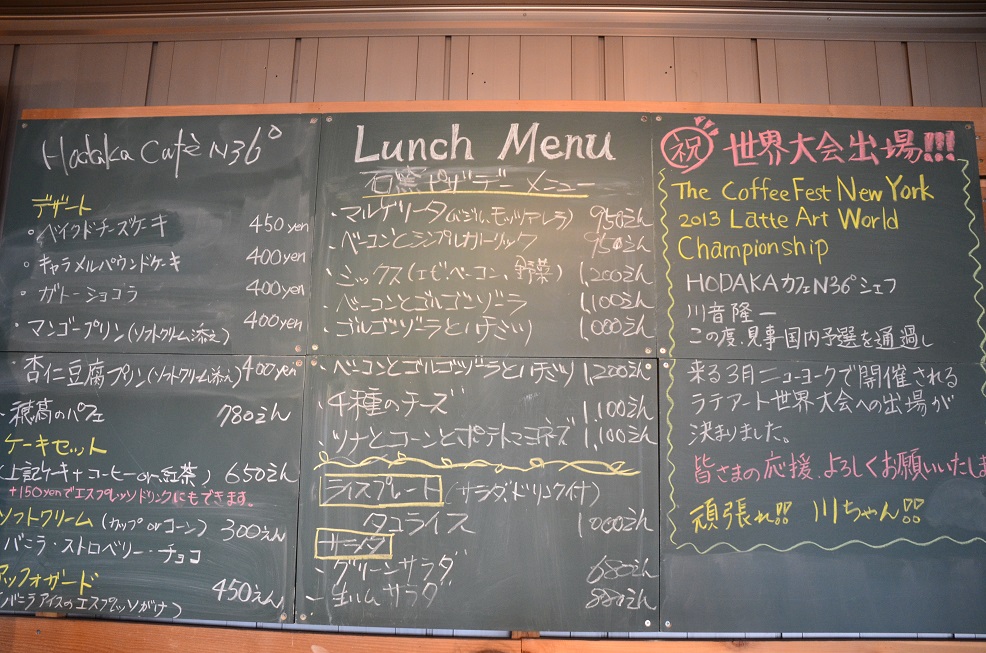 Hodaka Café N36°
デザート
・ベイクドチーズケーキ 450yen
・キャラメルパウンドケーキ 400yen
・ガトーショコラ 400yen
・マンゴープリン(ソフトクリーム添え) 400yen
・杏仁豆腐プリン(ソフトクリーム添え) 400yen
・穂高のパフェ 780えん
ケーキセット
(上記ケーキ+コーヒーor紅茶) 650えん
+150yenでエスプレッソドリンクにもできます。
ソフトクリーム(カップorコーン) 300えん
バニラ・ストロベリー・チョコ
アッフォガード 450えん
(バニラアイスのエスプレッソがけ)
Lunch Menu
石窯ピザデーメニュー
・マルゲリータ(バジル、モッツァレラ) 950えん
・ベーコンとシンプルガーリック 950えん
・ミックス(エビ、ベーコン、野菜) 1,200えん
・ベーコンとゴルゴンゾーラ 1,100えん
・ゴルゴンゾーラとハチミツ 1,000えん
・ベーコンとゴルゴンゾーラとハチミツ 1,200えん
・4種のチーズ 1,100えん
・ツナとコーンとポテトマヨネーズ 1,100えん
ライスプレート(サラダ、ドリンク付)
タコライス 1000えん
サラダ
・グリーンサラダ 680えん
・生ハムサラダ 880えん
祝 世界大会出場!!!
The Coffee Fest New York
2013 Latte Art World
Championship
HODAKAカフェN36°シェフ
川音隆一
この度、見事国内予選を通過し
来る3月ニューヨークで開催される
ラテアート世界大会への出場が
決まりました。
皆さまの応援、よろしくお願いいたしま
頑張れ!! 川ちゃん!!